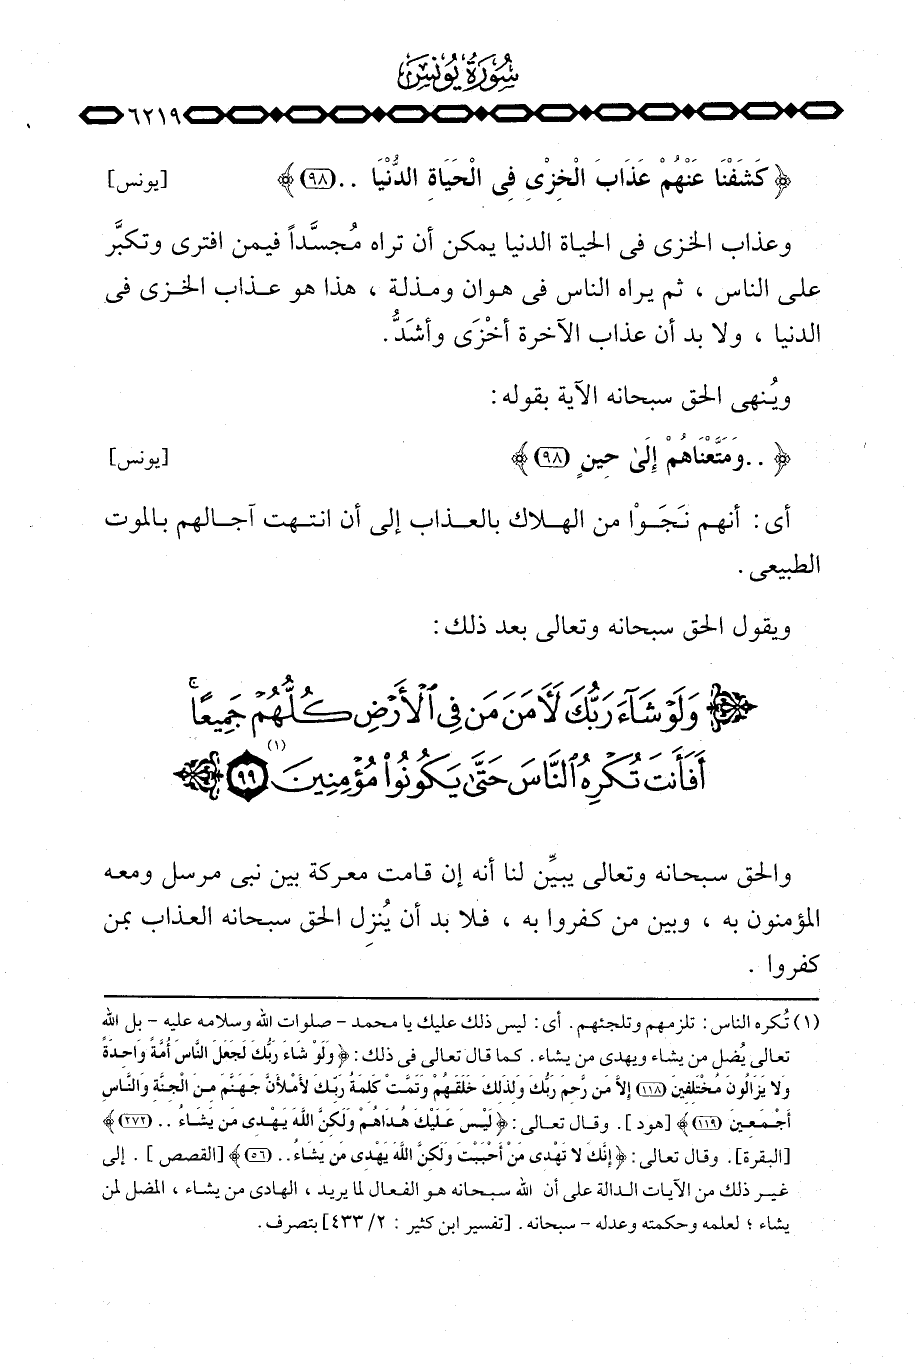 سُورَةُ يُونُسَ
٦٢١٩
﴿ كَشَفْنَا عَنْهُمْ عَذَابَ الْخِزْيِ فِي الْحَيَاةِ الدُّنْيَا .. (٩٨) ﴾ [يونس]
وعذاب الخزى فى الحياة الدنيا يمكن أن تراه مُجسَّداً فيمن افترى وتكبَّر
على الناس ، ثم يراه الناس فى هوان ومذلة ، هذا هو عذاب الخزى فى
الدنيا ، ولا بد أن عذاب الآخرة أخْزَى وأشَدُّ.
ويُنهى الحق سبحانه الآية بقوله:
﴿ .. وَمَتَّعْنَاهُمْ إِلَىٰ حِينٍ (٩٨) ﴾ [يونس]
أى: أنهم نَجَوْا من الهلاك بالعذاب إلى أن انتهت آجالهم بالموت
الطبيعى .
ويقول الحق سبحانه وتعالى بعد ذلك:
وَلَوْ شَآءَ رَبُّكَ لَأٓمَنَ مَن فِي ٱلْأَرْضِ كُلُّهُمْ جَمِيعًا ۚ
أَفَأَنتَ تُكْرِهُ ٱلنَّاسَ حَتَّىٰ يَكُونُوا۟ مُؤْمِنِينَ (١) ٩٩
والحق سبحانه وتعالى يبيِّن لنا أنه إن قامت معركة بين نبى مرسل ومعه
المؤمنون به ، وبين من كفروا به ، فلا بد أن يُنزِل الحق سبحانه العذاب بمن
كفروا .
(١) تُكره الناس: تلزمهم وتلجئهم. أى: ليس ذلك عليك يا محمد - صلوات الله وسلامه عليه - بل الله
تعالى يُضل من يشاء ويهدى من يشاء. كما قال تعالى فى ذلك: ﴿ وَلَوْ شَاءَ رَبُّكَ لَجَعَلَ النَّاسَ أُمَّةً وَاحِدَةً
وَلا يَزَالُونَ مُخْتَلِفِينَ (١١٨) إِلاَّ مَن رَّحِمَ رَبُّكَ وَلِذَلِكَ خَلَقَهُمْ وَتَمَّتْ كَلِمَةُ رَبِّكَ لأَمْلأَنَّ جَهَنَّمَ مِنَ الْجِنَّةِ وَالنَّاسِ
أَجْمَعِينَ (١١٩) ﴾ [هود]. وقال تعالى: ﴿ لَيْسَ عَلَيْكَ هُدَاهُمْ وَلَكِنَّ اللَّهَ يَهْدِي مَن يَشَاءُ .. (٢٧٢) ﴾
[البقرة]. وقال تعالى: ﴿ إِنَّكَ لا تَهْدِي مَنْ أَحْبَبْتَ وَلَكِنَّ اللَّهَ يَهْدِي مَن يَشَاءُ .. (٥٦) ﴾ [القصص]. إلى
غير ذلك من الآيات الدالة على أن الله سبحانه هو الفعال لما يريد ، الهادى من يشاء ، المضل لمن
يشاء ؛ لعلمه وحكمته وعدله - سبحانه. [تفسير ابن كثير : ٢/ ٤٣٣] بتصرف.